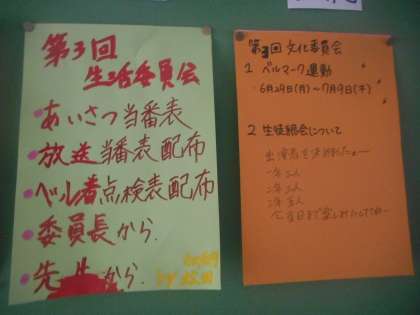 第3回
生活委員会
・あいさつ当番表
・放送当番表配布
・ベル着点検表配布
・委員長から.
・先生から.
第3回 文化委員会
1 ベルマーク運動
・6月29日(月)~7月9日(木)
2 生徒総会について
出演者を決めました
一年 2人
二年 2人
三年